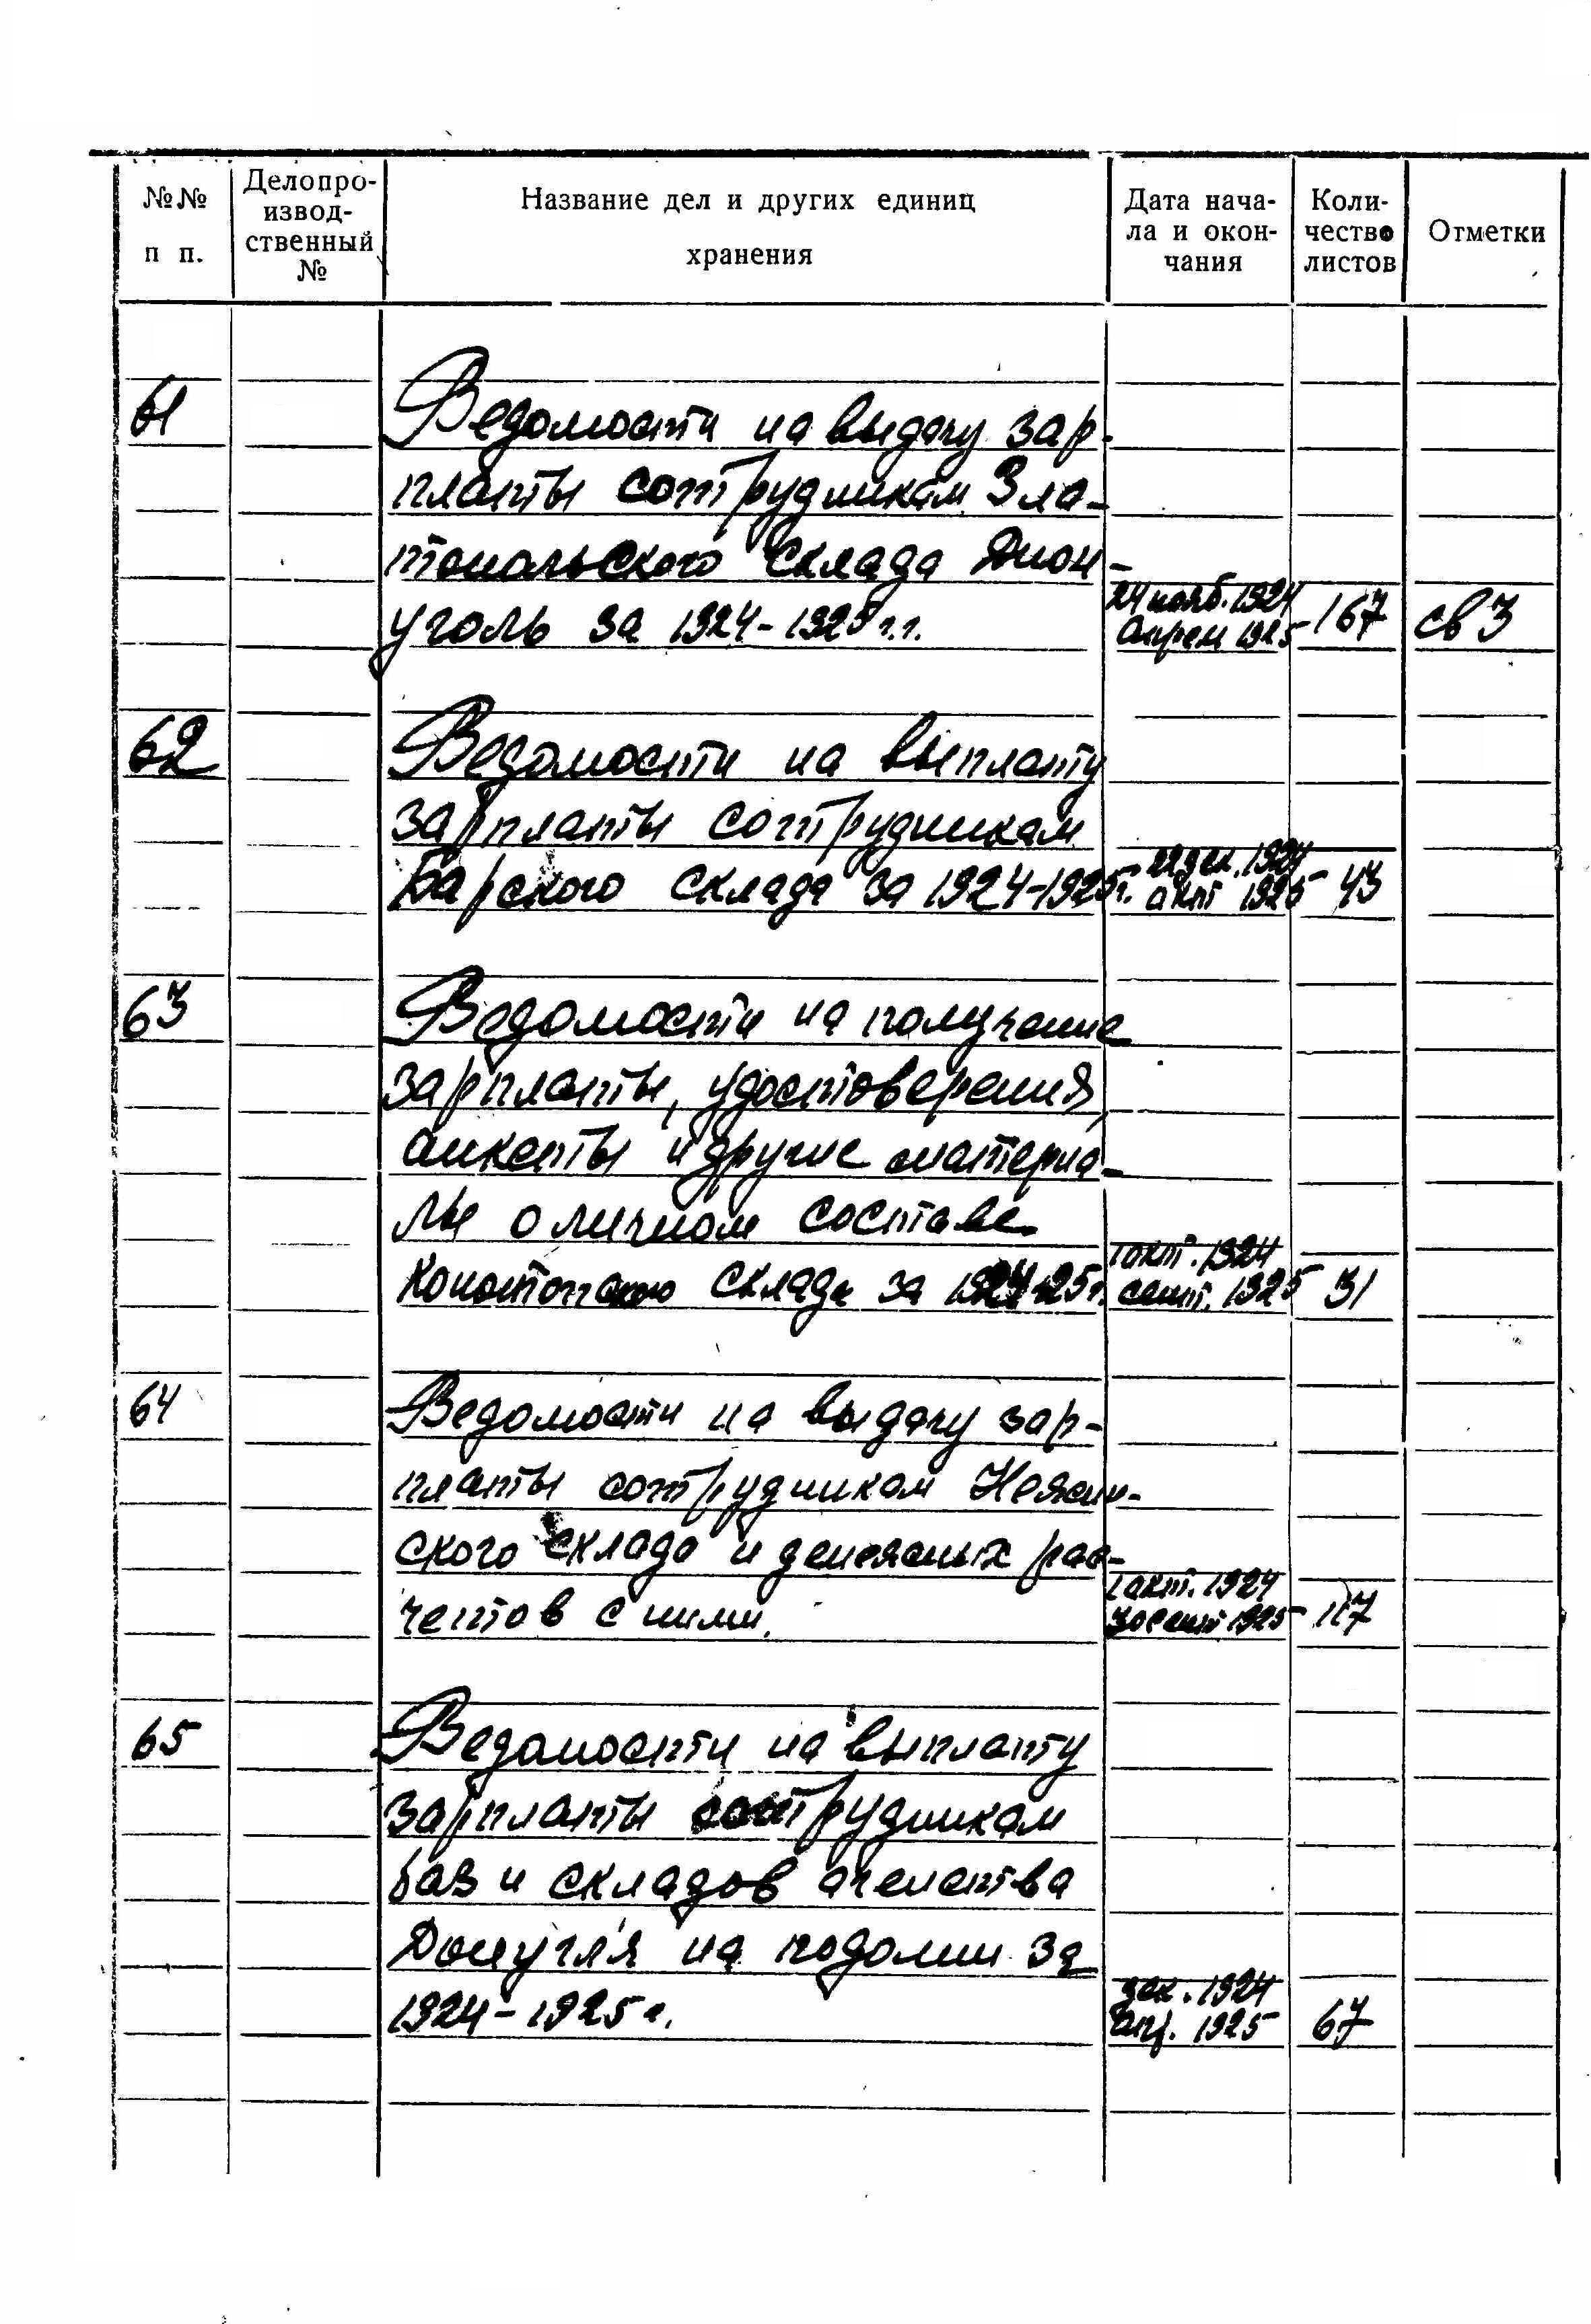 №№ п п.
Делопро-
извод-
ственный
№
Название дел и других единиц
хранения
Дата нача-
ла и окон-
чания
Коли-
чество
листов
Отметки
61 Ведомости на выдачу зар-
платы сотрудникам Зла-
топольского склада
24 нояб. 1924
уголь за 1924-1925 г.г. 1925 167 св 3
62 Ведомости на выплату
зарплаты сотрудникам
дек. 1924
Барского склада за 1924-1925г. окт 1925 43
63 Ведомости на получение
зарплаты, удостоверения,
анкеты и другие материа-
лы о личном составе
1 окт. 1924
Конотопского склада за 1924-25г. сент. 1925 31
64 Ведомости на выдачу зар-
платы сотрудникам Нежин-
ского склада и денежных рас-
1 окт. 1924
четов с ними. 30 сент 1925 117
65 Ведомости на выплату
зарплаты сотрудникам
баз и складов агентства
Донугля на Подолии за
дек. 1924
1924-1925 г. апр. 1925 67